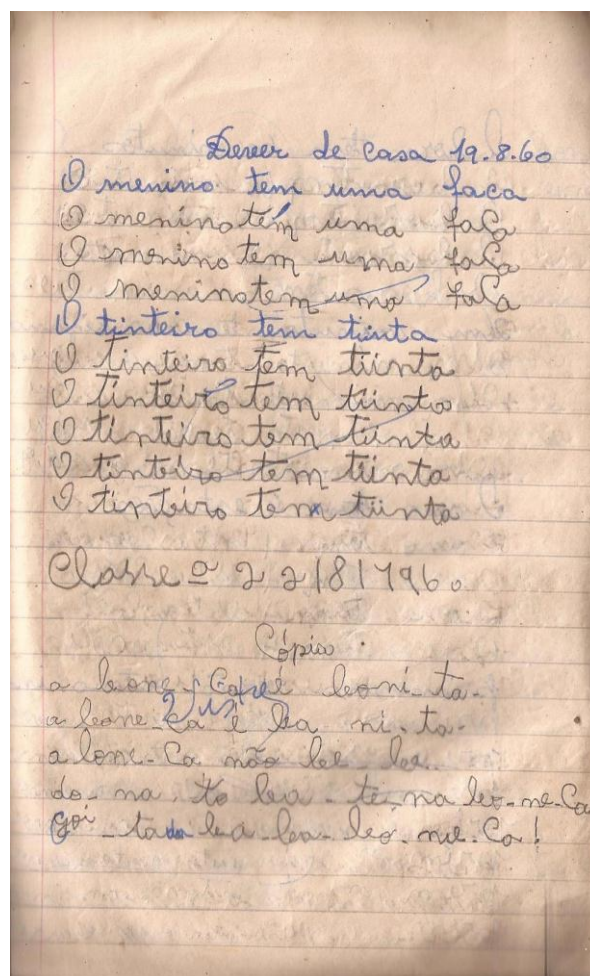 Dever de casa 19.8.60
O menino tem uma faca
O menino tem uma faca
O menino tem uma faca
O menino tem uma faca
O tinteiro tem tinta
O tinteiro tem tiinta
O tinteiro tem tiinta
O tinteiro tem tiinta
O tinteiro tem tiinta
O tinteiro tem tiinta
Classe 22/8/1960
Cópia
a bone-ca é boni-ta-
a bone-ca é bo ni-ta-
a bone-ca não be be
do-na to ba-te na bo-ne-ca
Coi-tada da bo-ne-ca!